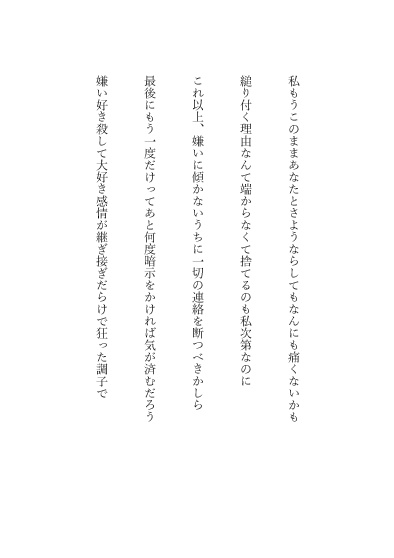 私もうこのままあなたとさようならしてもなんにも痛くないかも
縋り付く理由なんて端からなくて捨てるのも私次第なのに
これ以上、嫌いに傾かないうちに一切の連絡を断つべきかしら
最後にもう一度だけってあと何度暗示をかければ気が済むだろう
嫌い好き殺して大好き感情が継ぎ接ぎだらけで狂った調子で